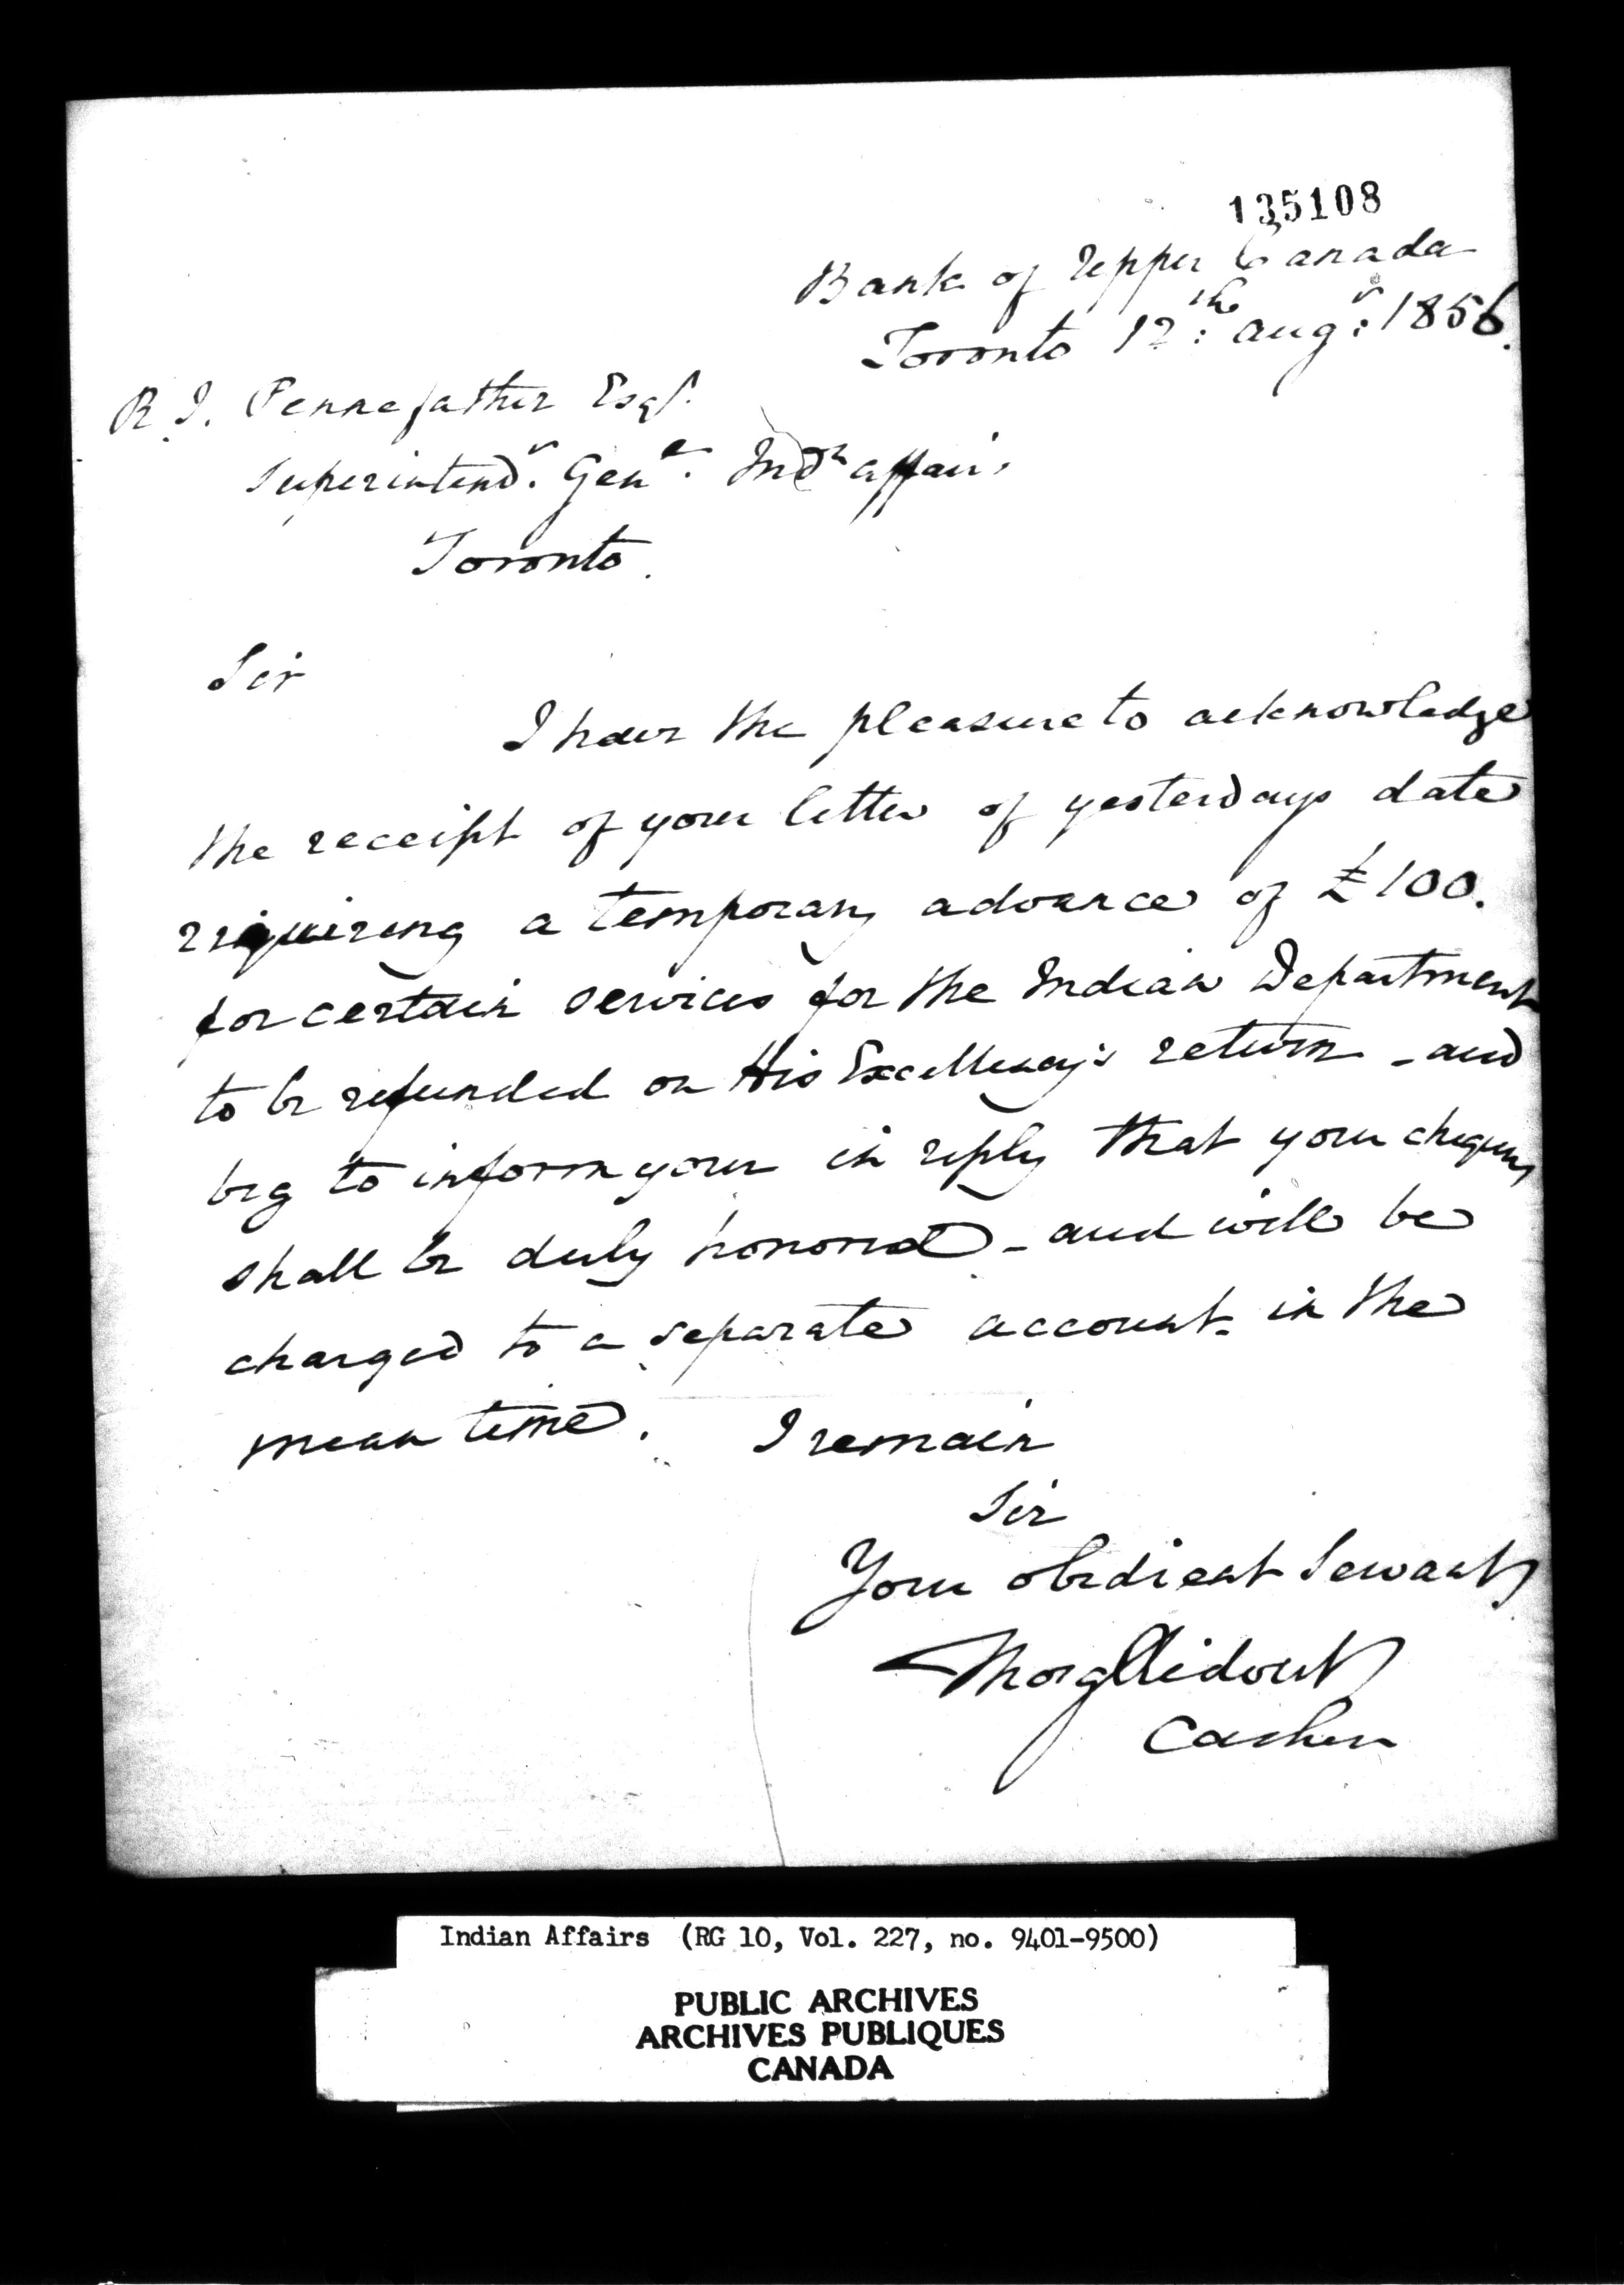 135108
Bank of Upper Canada
Toronto 12th: Augt: 1856.
R. T. Pennefather Esqr.
Superintendt. Genl. Indn affairs
Toronto.
Sir
I have the pleasure to acknowledge
the receipt of your letter of yesterdays date
requiring a temporary advance of £100.
for certain services for the Indian Department
to be refunded on His Excellency's return - and
beg to inform you in reply that your cheques
shall be duly honored - and will be
charged to a separate account in the
mean time. I remain
Sir
Your obedient Servant
Thos G Ridout
Cashier
Indian Affairs (RG 10, Vol. 227, no. 9401-9500)
PUBLIC ARCHIVES
ARCHIVES PUBLIQUES
CANADA